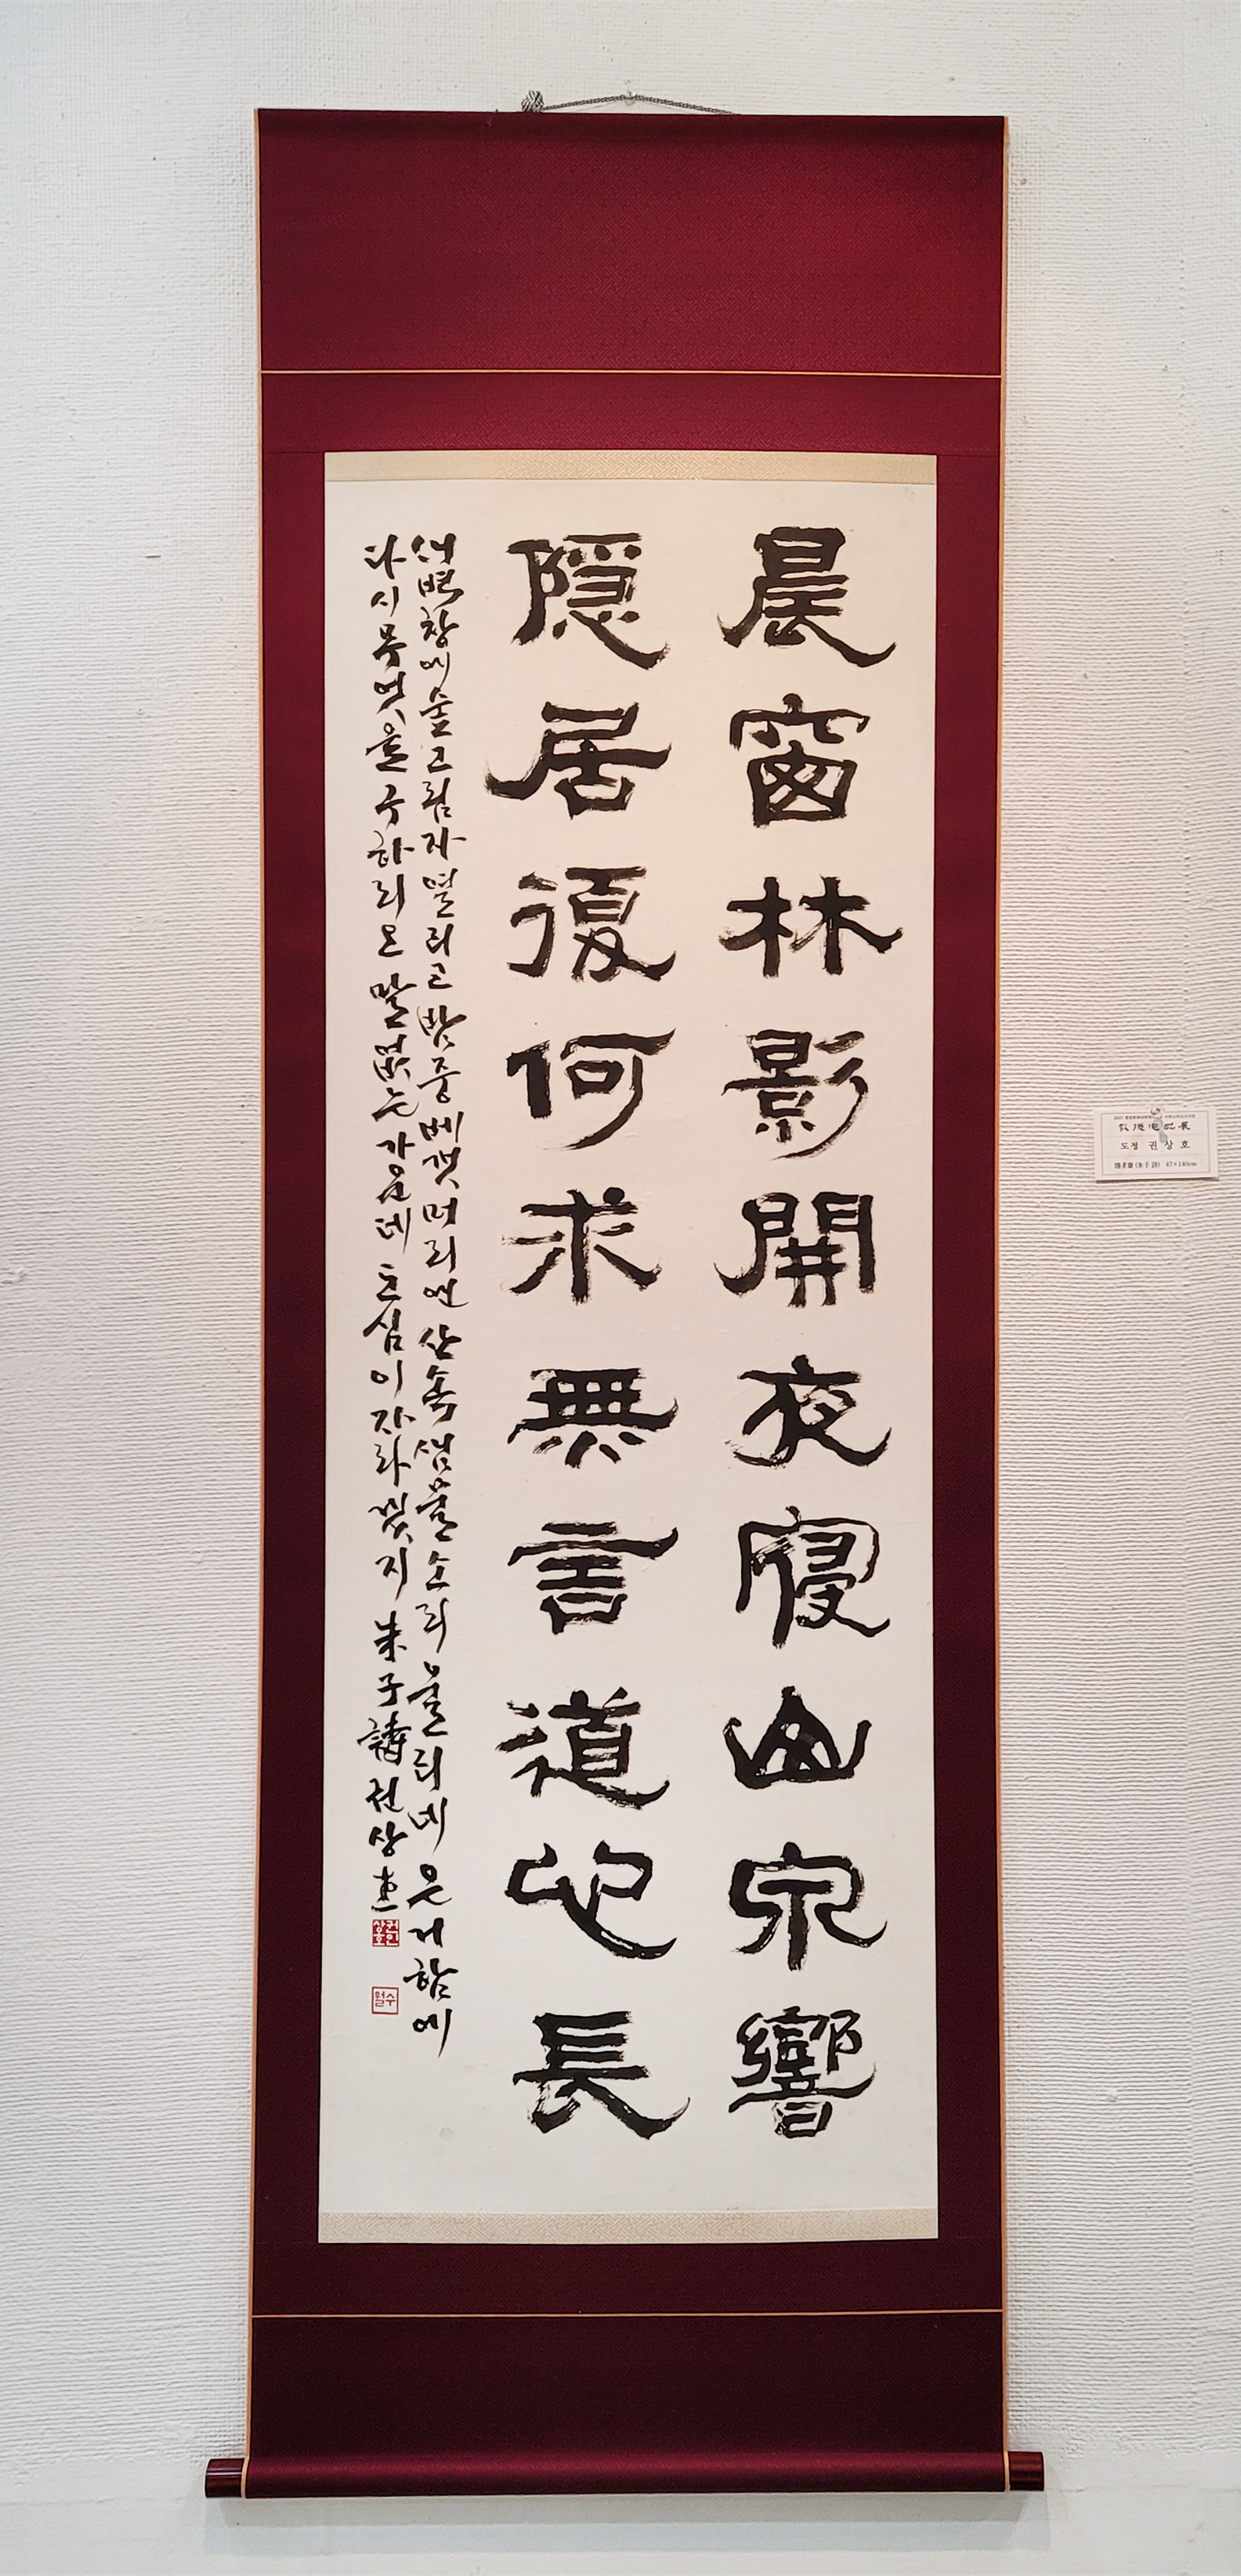 晨窗林影開夜寢山泉響
隱居復何求無言道心長
새벽창에숲그림자열리고밤중베갯머리엔산속샘물소리울리네은거함에
다시무엇을구하리오말없는가운데도심이자라겠지 朱子詩 권상호
권인상호
수월
도정 권상호
隱求齋(朱子詩) 47×140cm